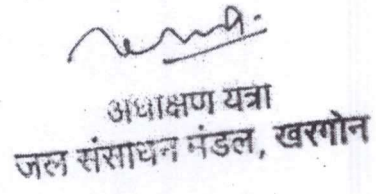 अधीक्षण यंत्री
जल संसाधन मंडल, खरगोन